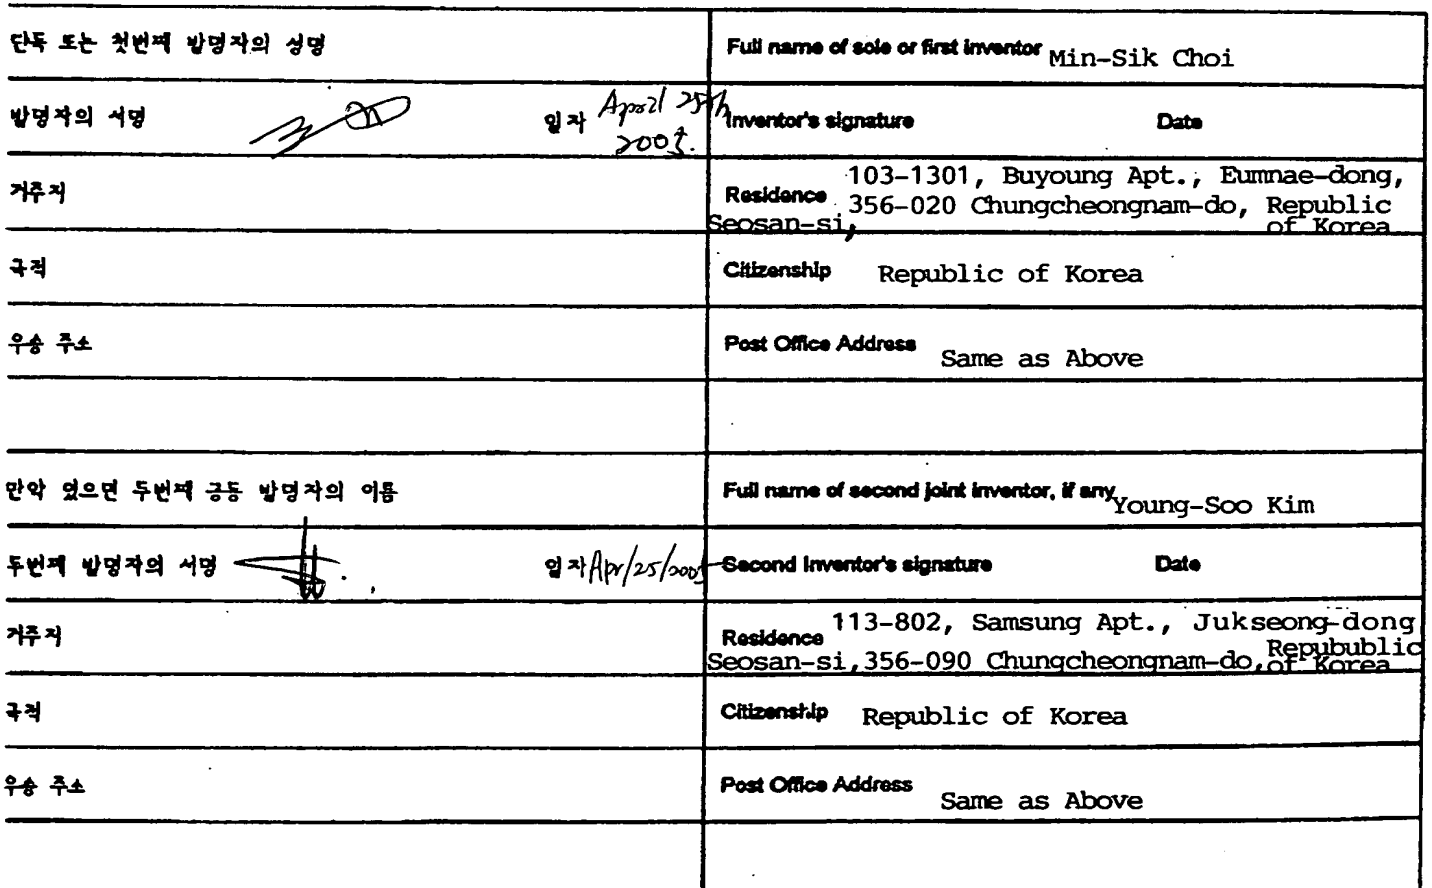 단독 또는 첫번째 발명자의 성명
Full name of sole or first inventor Min-Sik Choi
발명자의 서명
일자 April 25th
2005.
Inventor's signature Date
거주지
Residence 103-1301, Buyoung Apt., Eumnae-dong,
356-020 Chungcheongnam-do, Republic
Seosan-si, of Korea
국적
Citizenship Republic of Korea
우송 주소
Post Office Address Same as Above
만약 있으면 두번째 공동 발명자의 이름
Full name of second joint inventor, if any Young-Soo Kim
두번째 발명자의 서명
일자 Apr/25/2005
Second Inventor's signature Date
거주지
Residence 113-802, Samsung Apt., Jukseong-dong
Repubublic
Seosan-si, 356-090 Chungcheongnam-do, of Korea
국적
Citizenship Republic of Korea
우송 주소
Post Office Address Same as Above